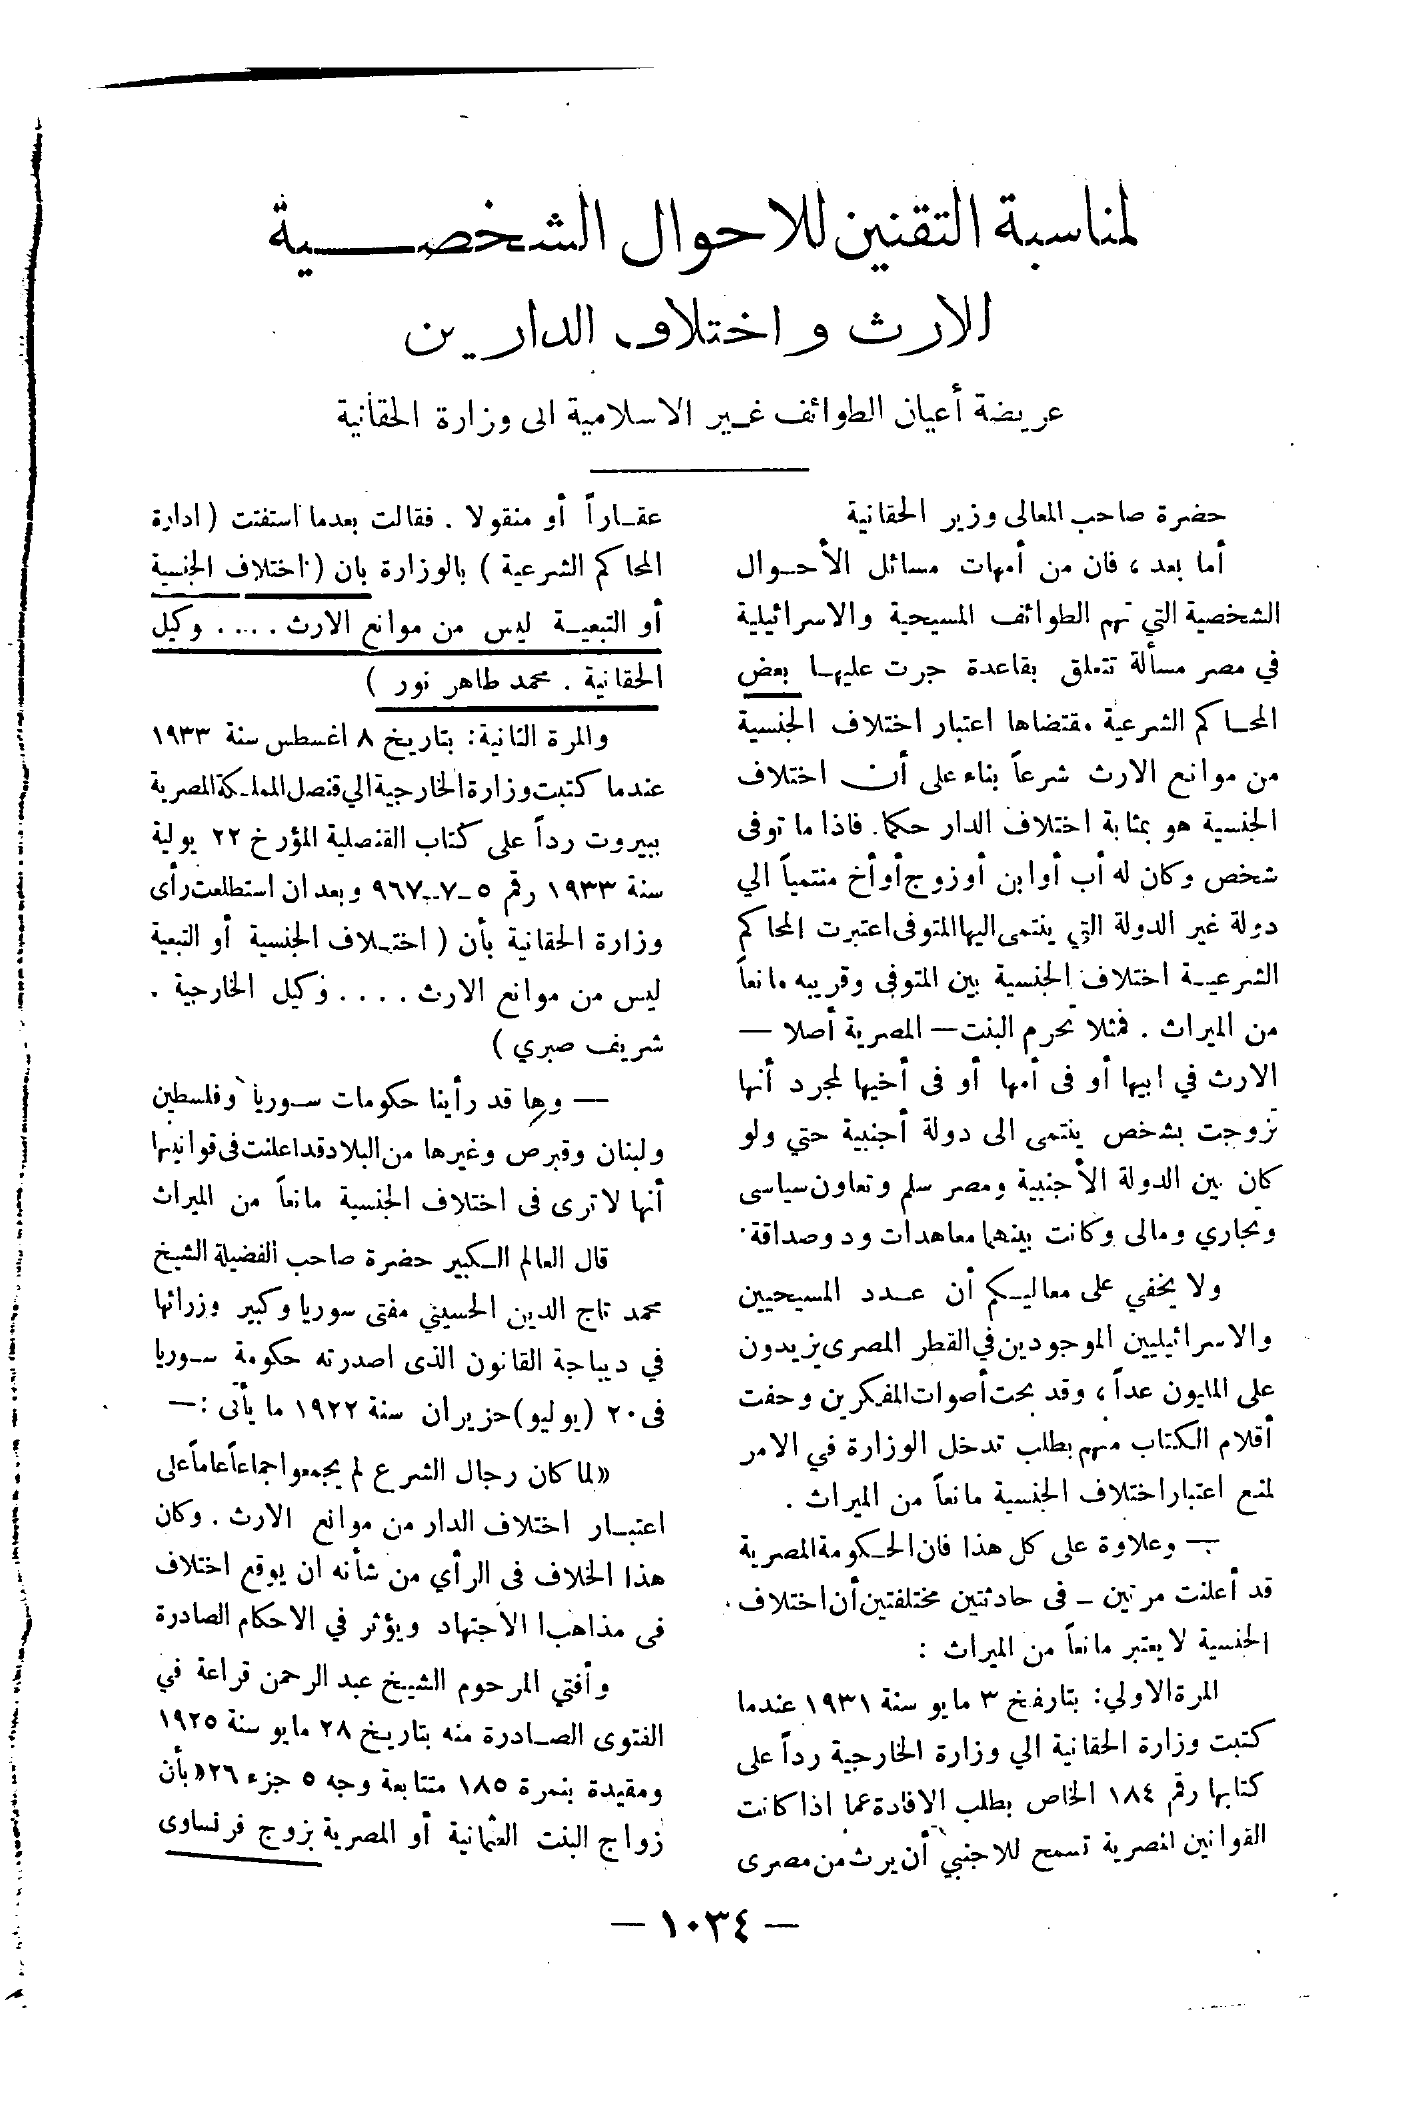 لمناسبة التقنين للاحوال الشخصية
الارث واختلاف الدارين
عريضة أعيان الطوائف غير الاسلامية الى وزارة الحقانية
حضرة صاحب المعالى وزير الحقانية
أما بعد ، فان من أمهات مسائل الأحوال
الشخصية التي تهم الطوائف المسيحية والاسرائيلية
في مصر مسألة تتعلق بقاعدة جرت عليها بعض
المحاكم الشرعية مقتضاها اعتبار اختلاف الجنسية
من موانع الارث شرعاً بناء على أن اختلاف
الجنسية هو بمثابة اختلاف الدار حكما. فاذا ما توفى
شخص وكان له أب أوابن أوزوج أوأخ منتمياً الي
دولة غير الدولة التي ينتمى اليها المتوفى اعتبرت المحاكم
الشرعية اختلاف الجنسية بين المتوفى وقريبه مانعاً
من الميراث . فمثلا تحرم البنت — المصرية أصلا —
الارث في ابيها أو فى أمها أو فى أخيها لمجرد أنها
تزوجت بشخص ينتمى الى دولة أجنبية حتي ولو
كان بين الدولة الأجنبية ومصر سلم وتعاون سياسى
وتجاري ومالى وكانت بينهما معاهدات ود وصداقة.
ولا يخفي على معاليكم أن عدد المسيحيين
والاسرائيليين الموجودين في القطر المصرى يزيدون
على المايون عداً ، وقد بحت أصوات المفكرين وحفت
أقلام الكتاب منهم بطلب تدخل الوزارة في الامر
لمنع اعتبار اختلاف الجنسية مانعاً من الميراث .
— وعلاوة على كل هذا فان الحكومة المصرية
قد أعلنت مرتين – فى حادثتين مختلفتين أن اختلاف
الجنسية لا يعتبر مانعاً من الميراث :
المرة الاولي: بتاريخ ٣ مايو سنة ١٩٣١ عندما
كتبت وزارة الحقانية الي وزارة الخارجية رداً على
كتابها رقم ١٨٤ الخاص بطلب الافادة عما اذا كانت
القوانين المصرية تسمح للاجنبي أن يرث من مصرى
عقاراً أو منقولا . فقالت بعدما استفتت ( ادارة
المحاكم الشرعية ) بالوزارة بان ( اختلاف الجنسية
أو التبعية ليس من موانع الارث .... وكيل
الحقانية . محمد طاهر نور )
والمرة الثانية: بتاريخ ٨ اغسطس سنة ١٩٣٣
عندما كتبت وزارة الخارجية الي قنصل المملكة المصرية
ببيروت رداً على كتاب القنصلية المؤرخ ٢٢ يولية
سنة ١٩٣٣ رقم ٥-٧-٩٦٧ وبعد ان استطلعت رأى
وزارة الحقانية بأن ( اختلاف الجنسية أو التبعية
ليس من موانع الارث .... وكيل الخارجية .
شريف صبري )
— وها قد رأينا حكومات سوريا وفلسطين
ولبنان وقبرص وغيرها من البلاد قد اعلنت فى قوانينها
أنها لا ترى فى اختلاف الجنسية مانعاً من الميراث
قال العالم الكبير حضرة صاحب الفضيلة الشيخ
محمد تاج الدين الحسيني مفتى سوريا وكبير وزرائها
في ديباجة القانون الذى اصدرته حكومة سوريا
فى ٢٠ (يوليو) حزيران سنة ١٩٢٢ ما يأتى :—
«لما كان رجال الشرع لم يجمعوا اجماعاً عاماً على
اعتبار اختلاف الدار من موانع الارث . وكان
هذا الخلاف فى الرأي من شأنه ان يوقع اختلاف
فى مذاهب الاجتهاد ويؤثر في الاحكام الصادرة
وأفتي المرحوم الشيخ عبد الرحمن قراعة في
الفتوى الصادرة منه بتاريخ ٢٨ مايو سنة ١٩٢٥
ومقيدة بنمرة ١٨٥ متتابعة وجه ٥ جزء ٢٦ «بأن
زواج البنت العثمانية أو المصرية بزوج فرنساوى
— ١٠٣٤ —